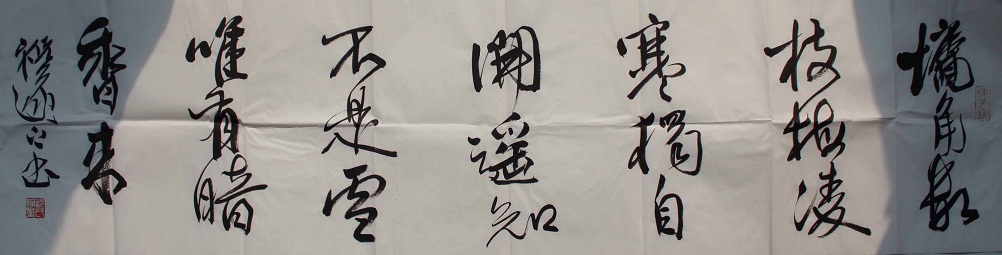 墙角数
枝梅凌
寒獨自
開遥知
不是雪
唯有暗
香来